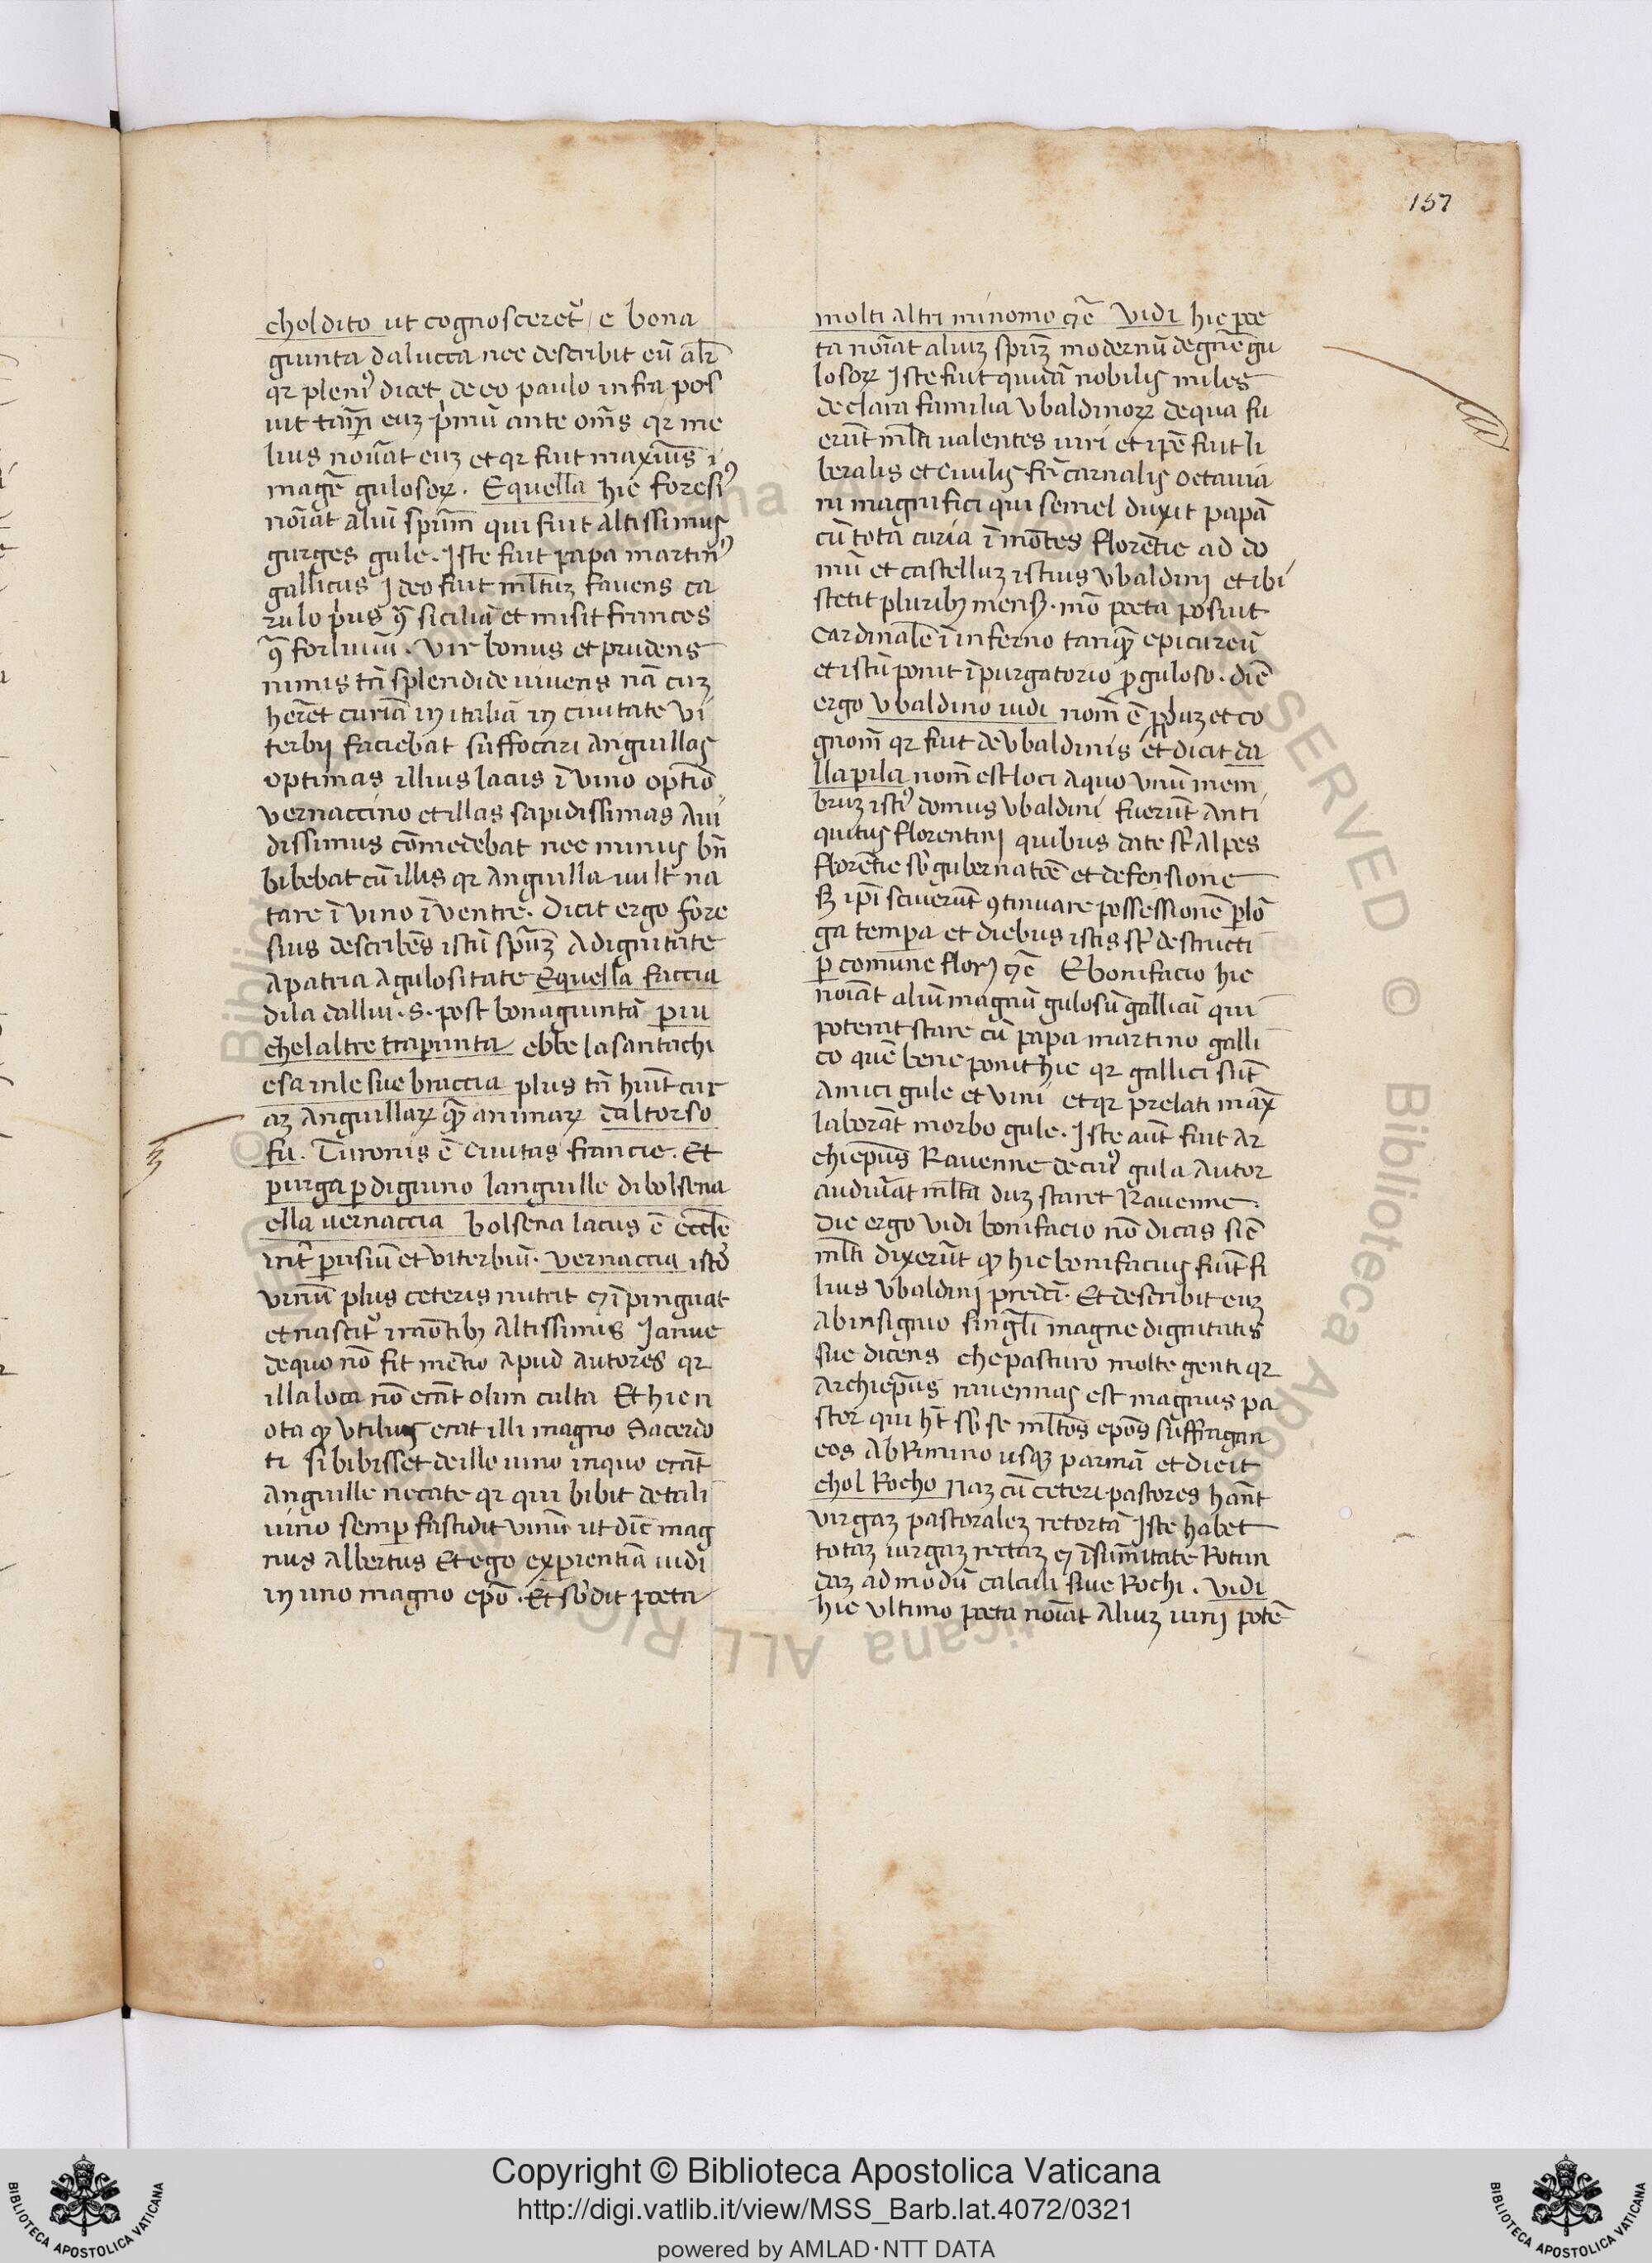 157
choldito ut cognosceret᷑ / e bona
giunta dalucca nec describit eū alr̄
qr plenı᷒ dicet de eo paulo infra pos
uit tam̄ euꝫ pͥmū ante om̄s qr me
lius nou̅at euꝫ et qr fuit maxim̄s ī
mag̅e gulosoꝝ . Equella hic foresi᷒
noīat aliū spūm qui fuit altissimus
gurges gule . Iste fuit papa martin᷒
gallicus Ideo fuit ml̄tuꝫ favens ca
rulo pͥus ꝯ̄ siciliā et misit frances
ꝯ̄ forliuiū . Vir bonus et prudens
nimis tn̄ splendide uiuens nā cuꝫ
herēt curiā in italiā in ciuitate vi
terbij faciebat suffocari anguillas
optimas illius lacus ī vino optīo
vernaccino et illas sapidissimas aui
dissimus cōmedebat nec minus bn̄
bibebat cū illis qr anguilla uult na
tare ī vino ī ventre . Dicit ergo fore
sius describēs istū spūꝫ a dignitate
a patria a gulositate Equella faccia
dila dallui . S . post bonagiuntā piu
chelaltre trapunta ebbe la santachi
esa inle sue braccia plus tn̄ hūit cur
aꝫ anguillaꝝ qͣꝫ animaꝝ daltorso
fu . Turonis ē ciuitas francie . Et
purga ꝑ digiuno languille dibolsena
ella vernaccia bolsena lacus ē eccl̄e
int᷑ ꝑusiū et viterbiū . vernaccia istō
vinū plus ceteris nutrit ⁊ īpinguat
et nascit᷑ ī mōtibꝫ altissimis Ianue
de quo nō fit mētio apud autores qr
illa loca nō erāt olim culta Et hic n
ota qꝫ utilius erat illi magno sacerdo
ti si bibisset de illo uino in quo erāt
anguille necate qr qui bibit de tali
uino semꝑ fastidit vinū ut dic̄ mag
nus albertus Et ego exꝑientiā uidi
in uno magno epō . Et sb̄dit poeta
molti altri minomo ⁊c̄ Vidi hic poe
ta noīat aliuꝫ spūꝫ modernū de gn̄e gu
losoꝝ Iste fuit quidā nobilis miles
de clara familia Vbaldinoꝝ de qua fu
erūt ml̄ti ualentes uiri et ip̄e fuit li
beralis et ciuilis fr̄ carnalis octauia
ni magnifici qui semel duxit papā
cū tota curia ī mōtes florētie ad do
mū et castelluꝫ istius Vbaldini et ibi
stetit pluribꝫ mensꝫ . mō poeta posuit
cardinalē ī inferno tanqͣꝫ epicureū
et istū ponit ī purgatorio ꝓ guloso . dic̄
ergo Vbaldino uidi nom̄ ē ꝓp̄uꝫ et co
gnom̄ qr fuit de Vbaldinis et dicit da
lla pila nom̄ est loci a quo vnū mem
bruꝫ isti᷒ domus Vbaldini fuerūt anti
quitus florentini quibus date st̄ alpes
florētie sb̄ gubernatōe et defensione
sꝫ ip̄i sciuerūt ꝯtinuare possessionē ꝑ lō
ga tempa et diebus istis st̄ destructi
ꝑ comune flor̄ ⁊c̄ Ebonifacio hic
noīat aliū magnū gulosū gallicū qui
poterit stare cū papa martino galli
co quē bene ponit hic qr gallici sūt
amici gule et vini et qr prelati max̄
laborāt morbo gule . Iste aūt fuit ar
chiepūs Ravenne de cuī᷒ gula autor
audiuāt ml̄ta duꝫ staret Ravenne .
Dic ergo vidi bonifacio nō dicas sic̄
ml̄ti dixerūt qꝫ hic bonifacius fuit fi
lius Vbaldini predc̄i . Et describit euꝫ
ab insignio singl̄i magne dignitatis
sue dicens che pasturo molte genti qr
Archiepūs rauennas est magnus pa
stor qui ht̄ sb̄ se ml̄tos epōs suffragan
eos ab Rimino usqꝫ parmā et dicit
chol Rocho Naꝫ cū ceteri pastores hānt
virgaꝫ pastoraleꝫ retortā Iste habet
totaꝫ uirgaꝫ rectaꝫ ⁊ ī sumitate Rotun
daꝫ ad modū calculi siue Rochi . Vidi
hic ultimo poeta noīat aliuꝫ uini potē
Copyright © Biblioteca Apostolica Vaticana
http://digi.vatlib.it/view/MSS_Barb.lat.4072/0321
powered by AMLAD·NTT DATA
BIBLIOTECA APOSTOLICA VATICANA
BIBLIOTECA APOSTOLICA VATICANA